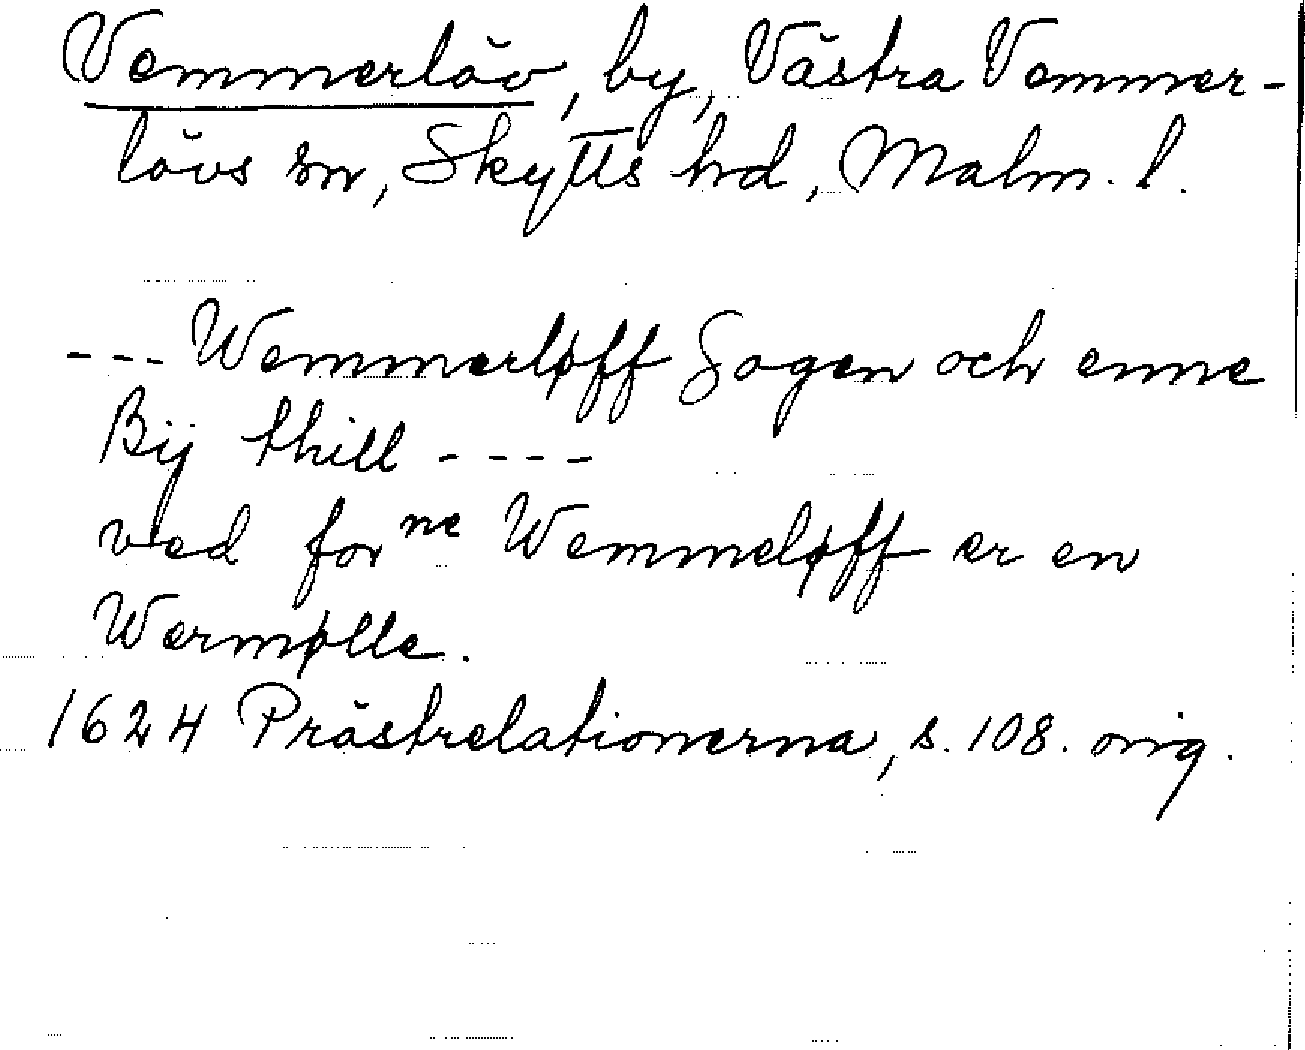 Vemmerlöv, by, Västra Vemmer-
lövs sn, Skytts hd, Malm. l.
--- Wemmerløff Sogen och enne
Bÿ thill ----
ved forne Wemmeløff er en
Wermølle.
1624 Prästrelationerna, s. 108. orig.